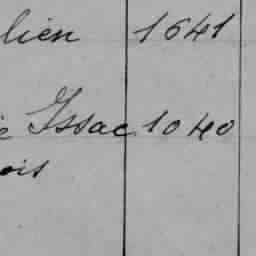 lien 1641
e Issac 1040
ois